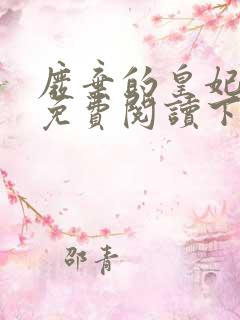 廢棄的皇妃
免費閱讀下
邵青